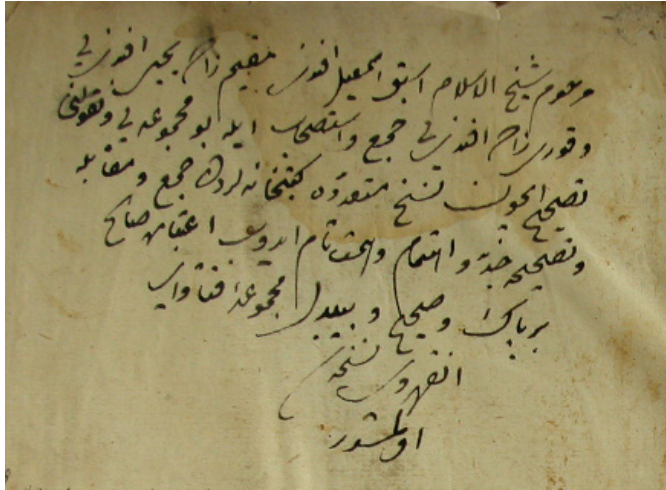 مرحوم شيخ الاسلام اسبق اسمعيل افندى مقيم زاده يحيى افندى يى
و قورى زاده افندى يى جمع واستصحاب ايله بو مجموعه يى و نقولنى
تصحيح ايچون نسخ متعدده كتبخانه لردن جمع و مقابله
و تصحيحه جد و اهتمام والحق تام ايدوب
بر پاك و صحيح و بى بدل مجموعه
انقروى نسخه
اولمشدر